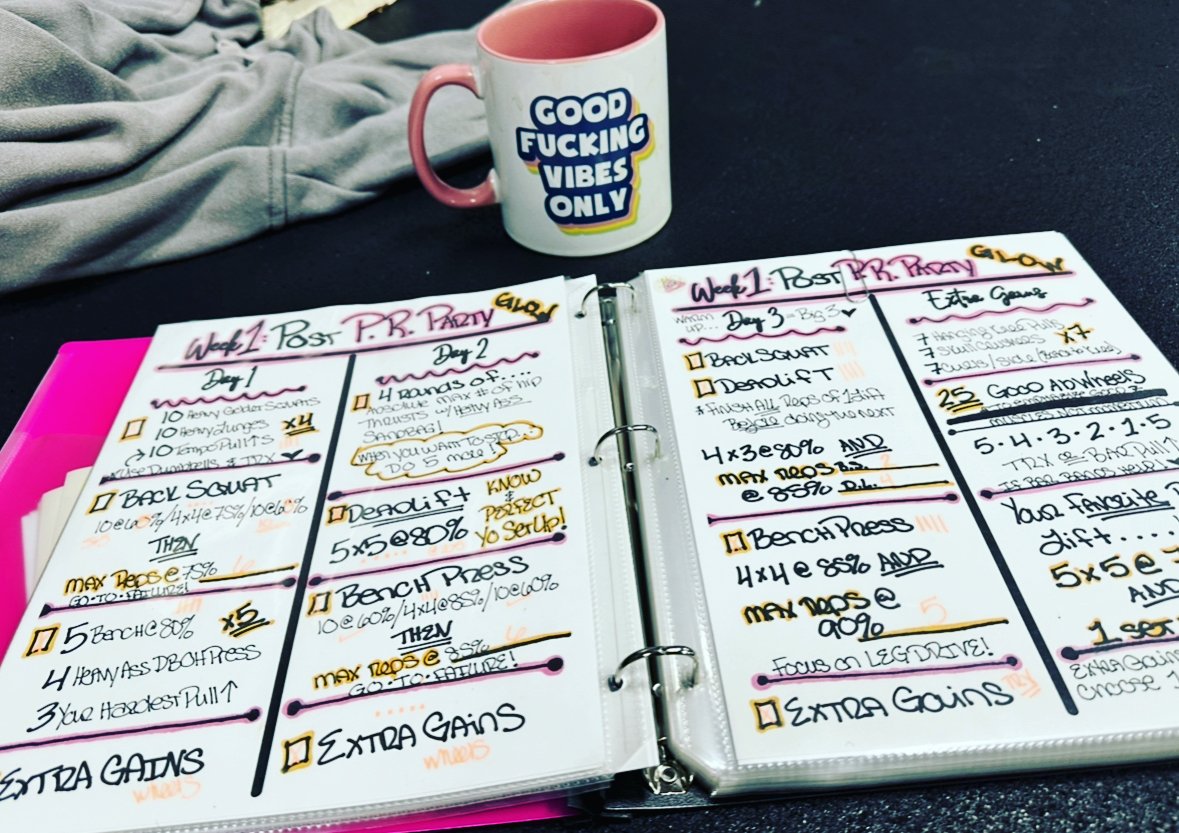 GOOD
FUCKING
VIBES
ONLY
Week 1: POST P.R. PARTY GLOW
Day 1
10 HEAVY GOBLET SQUATS
10 HEAVY LUNGES x4
10 TEMPO PULL↑S
*USE DUMBBELLS & TRX
BACK SQUAT
10@60%/4x4@75%/10@60%
THEN
MAX REPS @ 75%
GO·TO·FAILURE!
5 BENCH@80% x5
4 HEAVY ASS DB OH PRESS
3 YOUR HARDEST PULL↑
EXTRA GAINS
wheels
Day 2
4 ROUNDS OF....
ABSOLUTE MAX # OF HIP
THRUSTS W/ HEAVY ASS
SANDBAG!
WHEN YOU WANT TO STOP..
DO 5 MORE!
DEADLIFT
5x5@80%
KNOW
&
PERFECT
YO SETUP!
BENCH PRESS
10@60%/4x4@85%/10@60%
THEN
MAX REPS @ 85% 6
GO·TO·FAILURE!
EXTRA GAINS
wheels
Week 1: POST P.R. PARTY GLOW
WARM
UP...
Day 3 = BIG 3
BACK SQUAT
DEADLIFT
* FINISH ALL REPS OF 1 LIFT
BEFORE DOING THE NEXT
4x3@80% AND
MAX REPS B.S.
@ 85% D.L.
BENCH PRESS
4x4@85% AND
MAX REPS @
90% 5
FOCUS ON LEG DRIVE!
EXTRA GAINS
Extra Gains
7 HANGING KNEE PULLS
7 SKULLCRUSHERS x7
7 CURLS/SIDE
25 GOOD AB WHEELS
5·4·3·2·1·5
TRX OR BAR PULL
YOUR FAVORITE
LIFT....
5x5@
AND
1 SET
EXTRA GAINS
CHOOSE 1